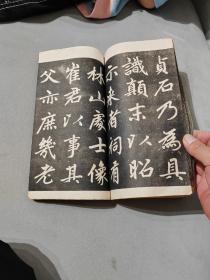 貞石乃為具
識顛末以昭
示來首同有
林山處士像
崔君以事其
父亦庶幾老